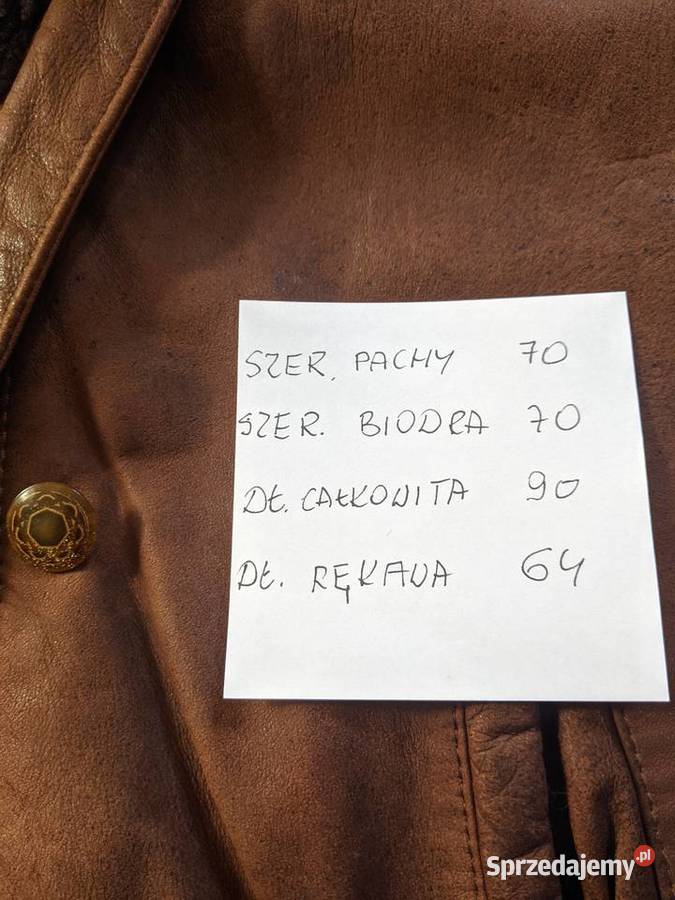 SZER. PACHY 70
SZER. BIODRA 70
DŁ. CAŁKOWITA 90
DŁ. RĘKAWA 64
Sprzedajemy.pl